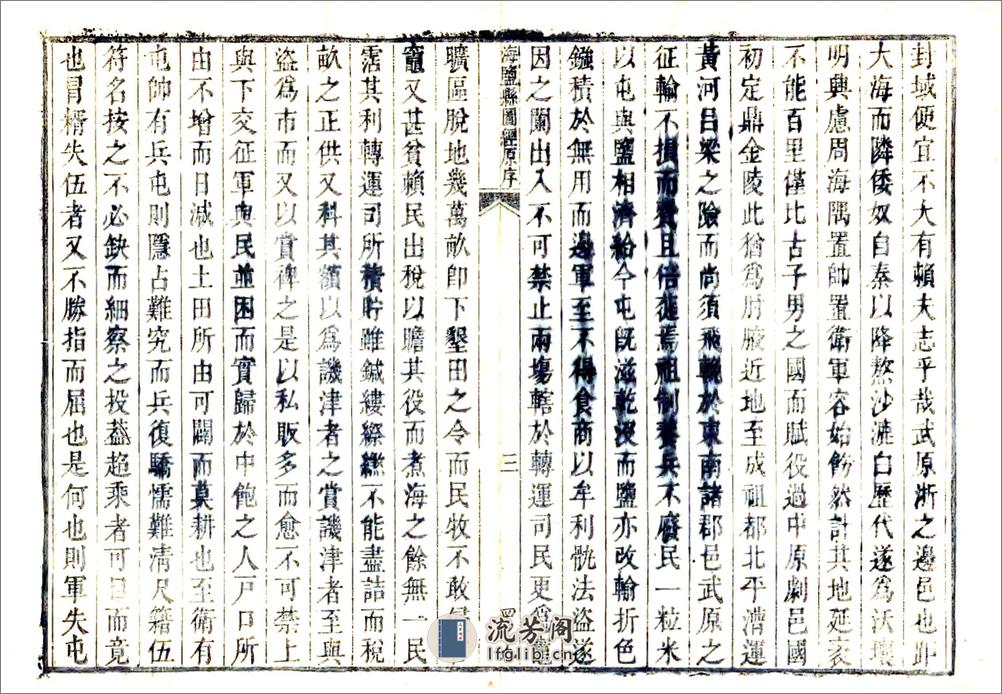 封域便宜不大有賴夫志乎哉武原浙之邊邑也距
大海而隣倭奴自秦以降熬沙漉白歷代遂爲沃壤
明興慮周海隅置帥置衛軍容始飭然計其地延袤
不能百里僅比古子男之國而賦役過中原劇邑國
初定鼎金陵此猶爲肘腋近地至成祖都北平漕運
黃河呂梁之險而尚須飛輓於東南諸郡邑武原之
征輸不損而費且倍蓰焉祖制養兵不廢民一粒米
以屯與鹽相濟給今屯旣滋乾没而鹽亦改輸折色
鏹積於無用而邊軍至不得食商以牟利骫法盜遂
因之闌出入不可禁止兩場轄於轉運司民吏爲
海鹽縣圖經原序
三
曠區脫地幾萬畝卽下墾田之令而民牧不敢
竈又甚貧賴民出稅以贍其役而煮海之餘無一民
霑其利轉運司所積貯雖鍼縷纍不能盡詰而稅
畝之正供又科其額以爲譏津者之賞譏津者至與
盜爲市而又以賞稗之是以私販多而愈不可禁上
與下交征軍與民並困而實歸於中飽之人戸口所
由不增而日減也土田所由可闢而莫耕也至衛有
屯帥有兵屯則隱占難究而兵復驕懦難清尺籍伍
符名按之不必缺而細察之投葢超乘者可而竟
也冒糈失伍者又不勝指而屈也是何也則軍失屯
流芳阁
lfglib.cn